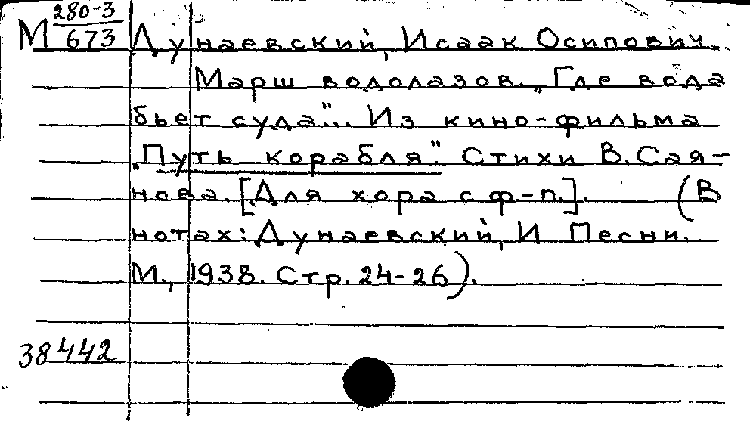 М 280-3/673 Дунаевский, Исаак Осипович.
Марш водолазов. "Где вода
бьет суда"... Из кино-фильма
"Путь корабля". Стихи В. Сая-
нова. [Для хора с ф-п.]. (В
нотах: Дунаевский, И Песни.
М., 1938. Стр. 24-26).
38442